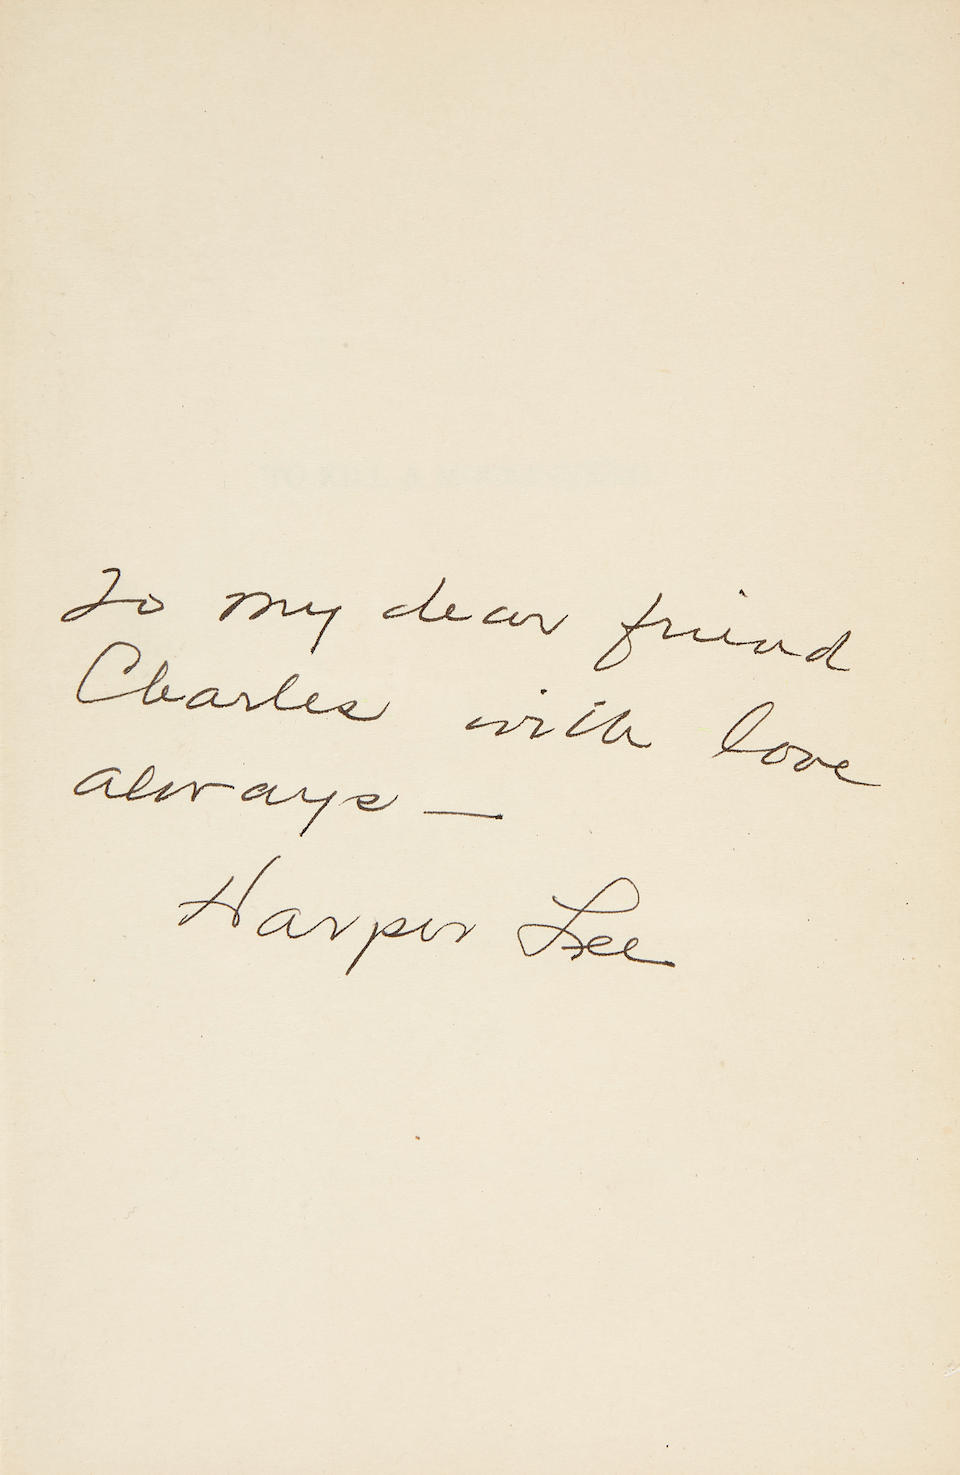 TO KILL A MOCKINGBIRD
To my dear friend
Charles with love
always —
Harper Lee